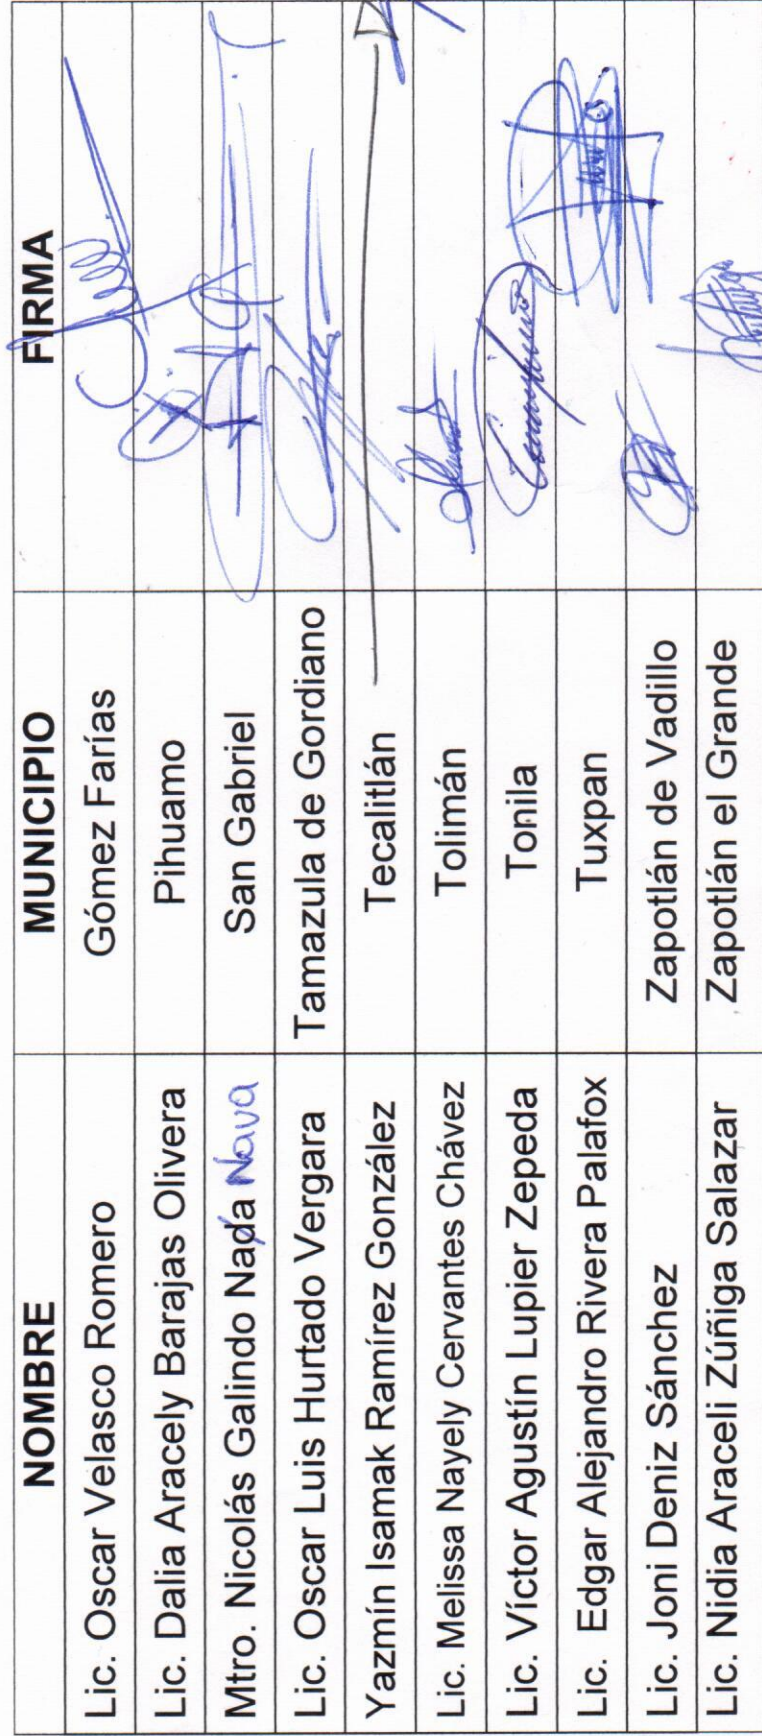 NOMBRE MUNICIPIO FIRMA
Lic. Oscar Velasco Romero Gómez Farías
Lic. Dalia Aracely Barajas Olivera Pihuamo
Mtro. Nicolás Galindo Nada Nava San Gabriel
Lic. Oscar Luis Hurtado Vergara Tamazula de Gordiano
Yazmín Isamak Ramírez González Tecalitlán
Lic. Melissa Nayely Cervantes Chávez Tolimán
Lic. Víctor Agustín Lupier Zepeda Tonila
Lic. Edgar Alejandro Rivera Palafox Tuxpan
Lic. Joni Deniz Sánchez Zapotlán de Vadillo
Lic. Nidia Araceli Zúñiga Salazar Zapotlán el Grande